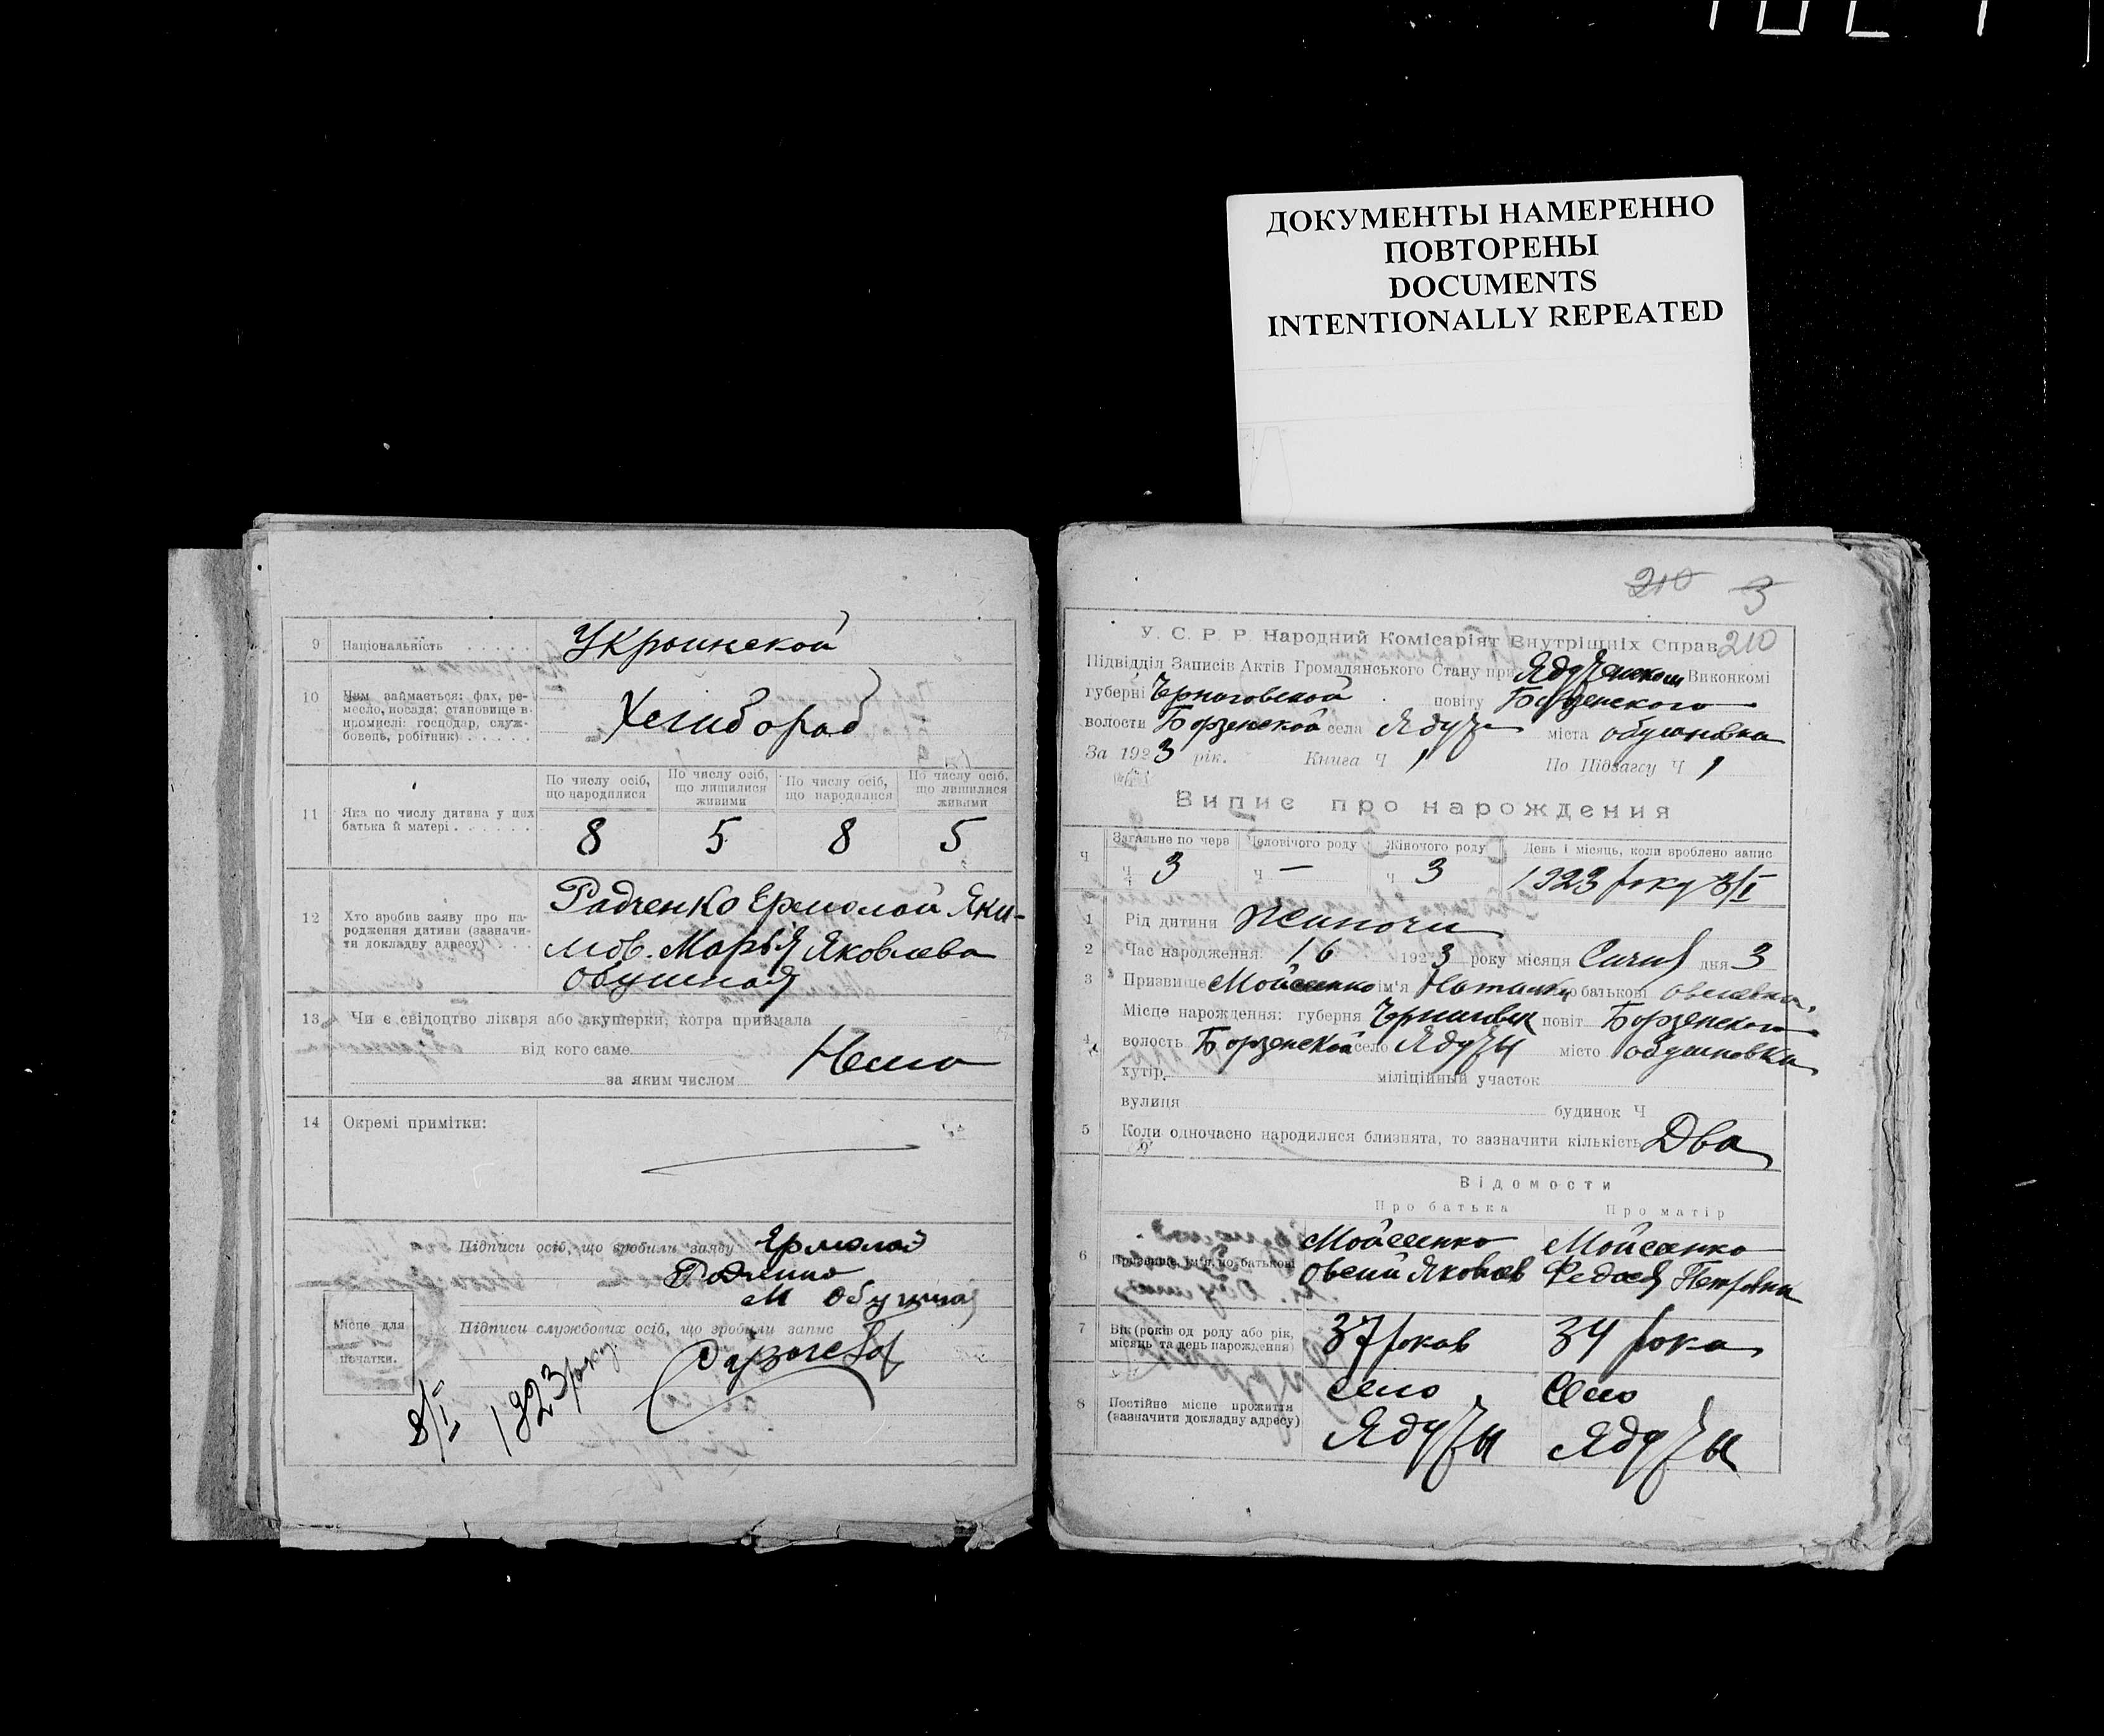 ДОКУМЕНТЫ НАМЕРЕННО
ПОВТОРЕНЫ
DOCUMENTS
INTENTIONALLY REPEATED
9 Національність
Украинской
10 Чим займається: фах, ре-
месло, посада; становище в
промислі: господар, служ-
бовець, робітник)
Хлибороб
11 Яка по числу дитина у цих
батька й матері
По числу осіб, що народилися
По числу осіб, що лишилися живими
По числу осіб, що народилися
По числу осіб, що лишилися живими
8 5 8 5
12 Хто зробив заяву про на-
родження дитини (зазначи-
ти докладну адресу)
Радченко Ермолай Яки-
мов. Марья Яковлева
Обушная
13 Чи є свідоцтво лікаря або акушерки, котра приймала
від кого саме
за яким числом
Нема
14 Окремі примітки:
Підписи осіб, що зробили заяву Ермолай
М Обушная
Підписи службових осіб, що зробили запис
Місце для
печатки.
8/I 1923 року
210 3
У. С. Р. Р. Народний Комісаріят Внутрішніх Справ 210
Підвідділ Записів Актів Громадянського Стану при Виконкомі
губерні Черниговской повіту Борзенского
волости Борзенской села Ядуты міста обушновка
За 1923 рік. Книга Ч 1 По Підзагсу Ч 1
Випис про народження
Ч Загальне по черв Чоловічого роду Жіночого роду День і місяць, коли зроблено запис
Ч 3 Ч — Ч 3 1923 року 8/I
1 Рід дитини Жиночи
2 Час народження: 16 1923 року місяця дня 3
3 Призвище Мойсеенко ім'я по батькові
4 Місце нарождення: губерня повіт Борзенского
волость Борзенской село Ядуты місто обушновка
хутір міліційный участок
вулиця будинок Ч
5 Коли одночасно народилися близнята, то зазначити кількість Два
Відомости
Про батька Про матір
6 Призвище, ім'я, по батькові
Мойсеенко Мойсеенко
Овсий Яковлев Петровна
7 Вік (років од роду або рік,
місяць та день народження)
37 роков 34 рока
8 Постійне місце прожиття
(зазначити докладну адресу)
село Село
Ядуты Ядуты